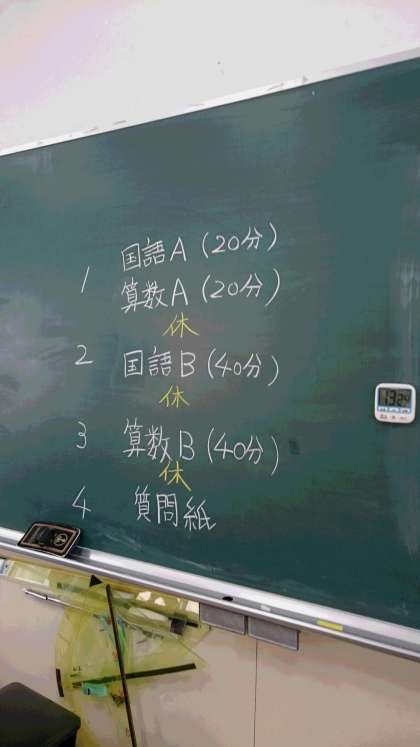 国語A(20分)
1
算数A(20分)
休
2 国語B(40分)
休
3 算数B(40分)
休
4 質問紙